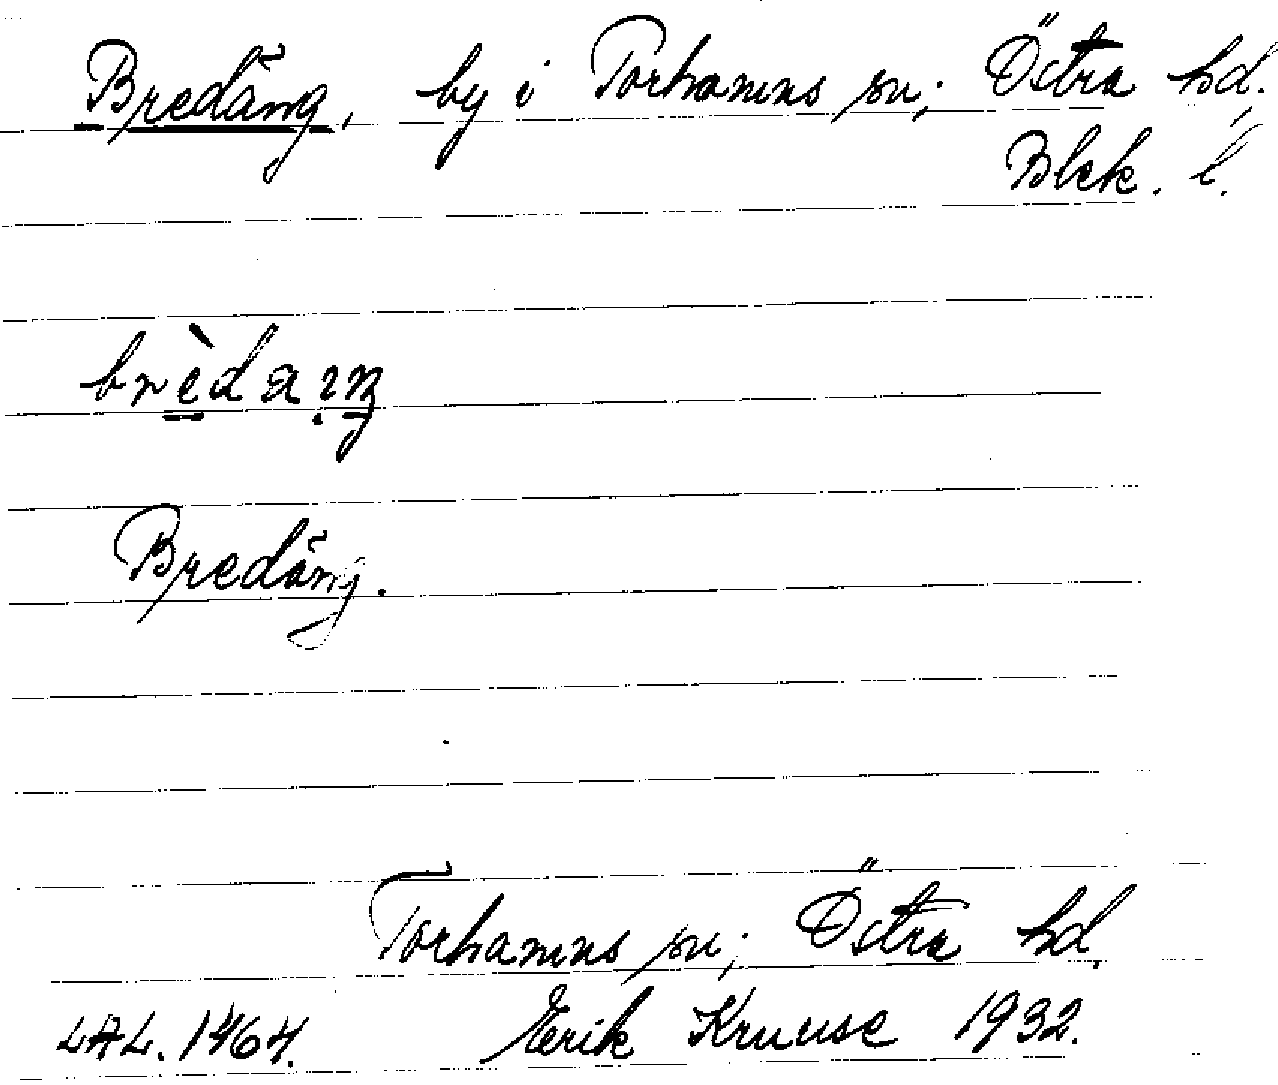 Bredäng, by i Torhamns sn; Östra hd,
Blek. l.
Bredäng.
Torhamns sn; Östra hd.
LAL. 1464. Erik Kruuse 1932.